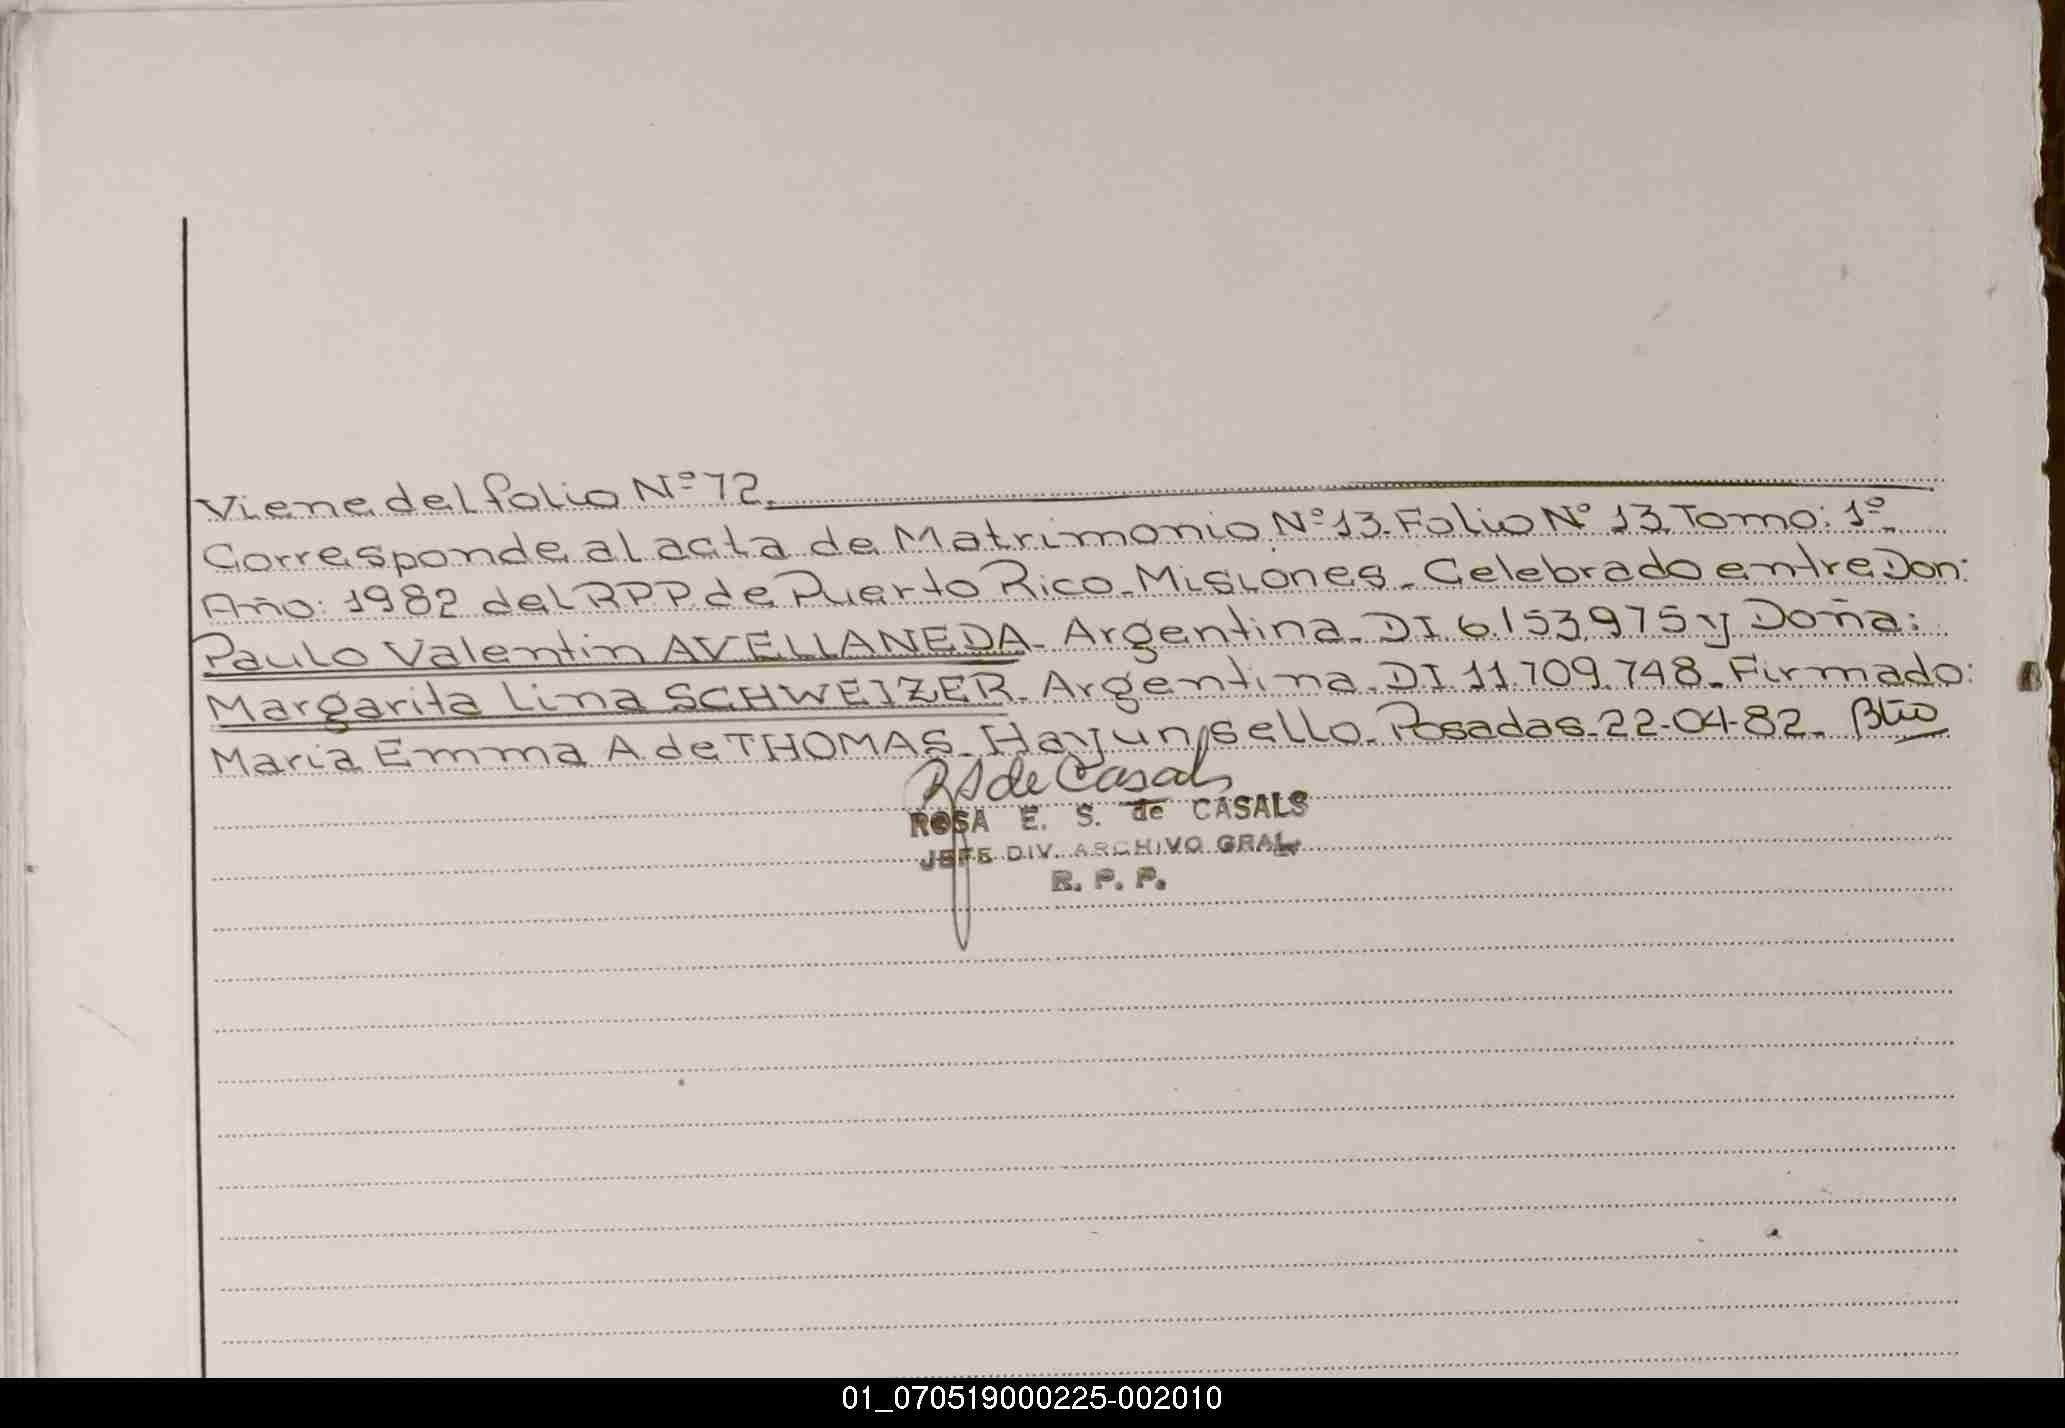 Viene del folio Nº 72.
Corresponde al acta de Matrimonio Nº 13. Folio Nº 13. Tomo: 1º.
Año: 1982 del RPP. de Puerto Rico. Misiones. Celebrado entre Don:
Paulo Valentin AVELLANEDA. Argentina. DI 6.153.975 y Doña:
Margarita Lina SCHWEIZER. Argentina. DI. 11.709.748. Firmado:
Maria Emma A. de THOMAS. Hay un sello. Posadas. 22-04-82. Btio
RS de Casals
ROSA E. S. de CASALS
JEFE DIV. ARCHIVO GRAL.
R. P. P.
01_070519000225-002010